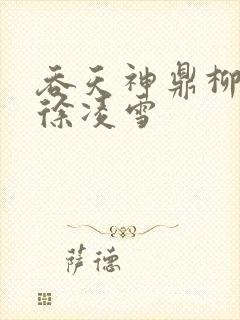 吞天神鼎柳
徐凌雪
萨德